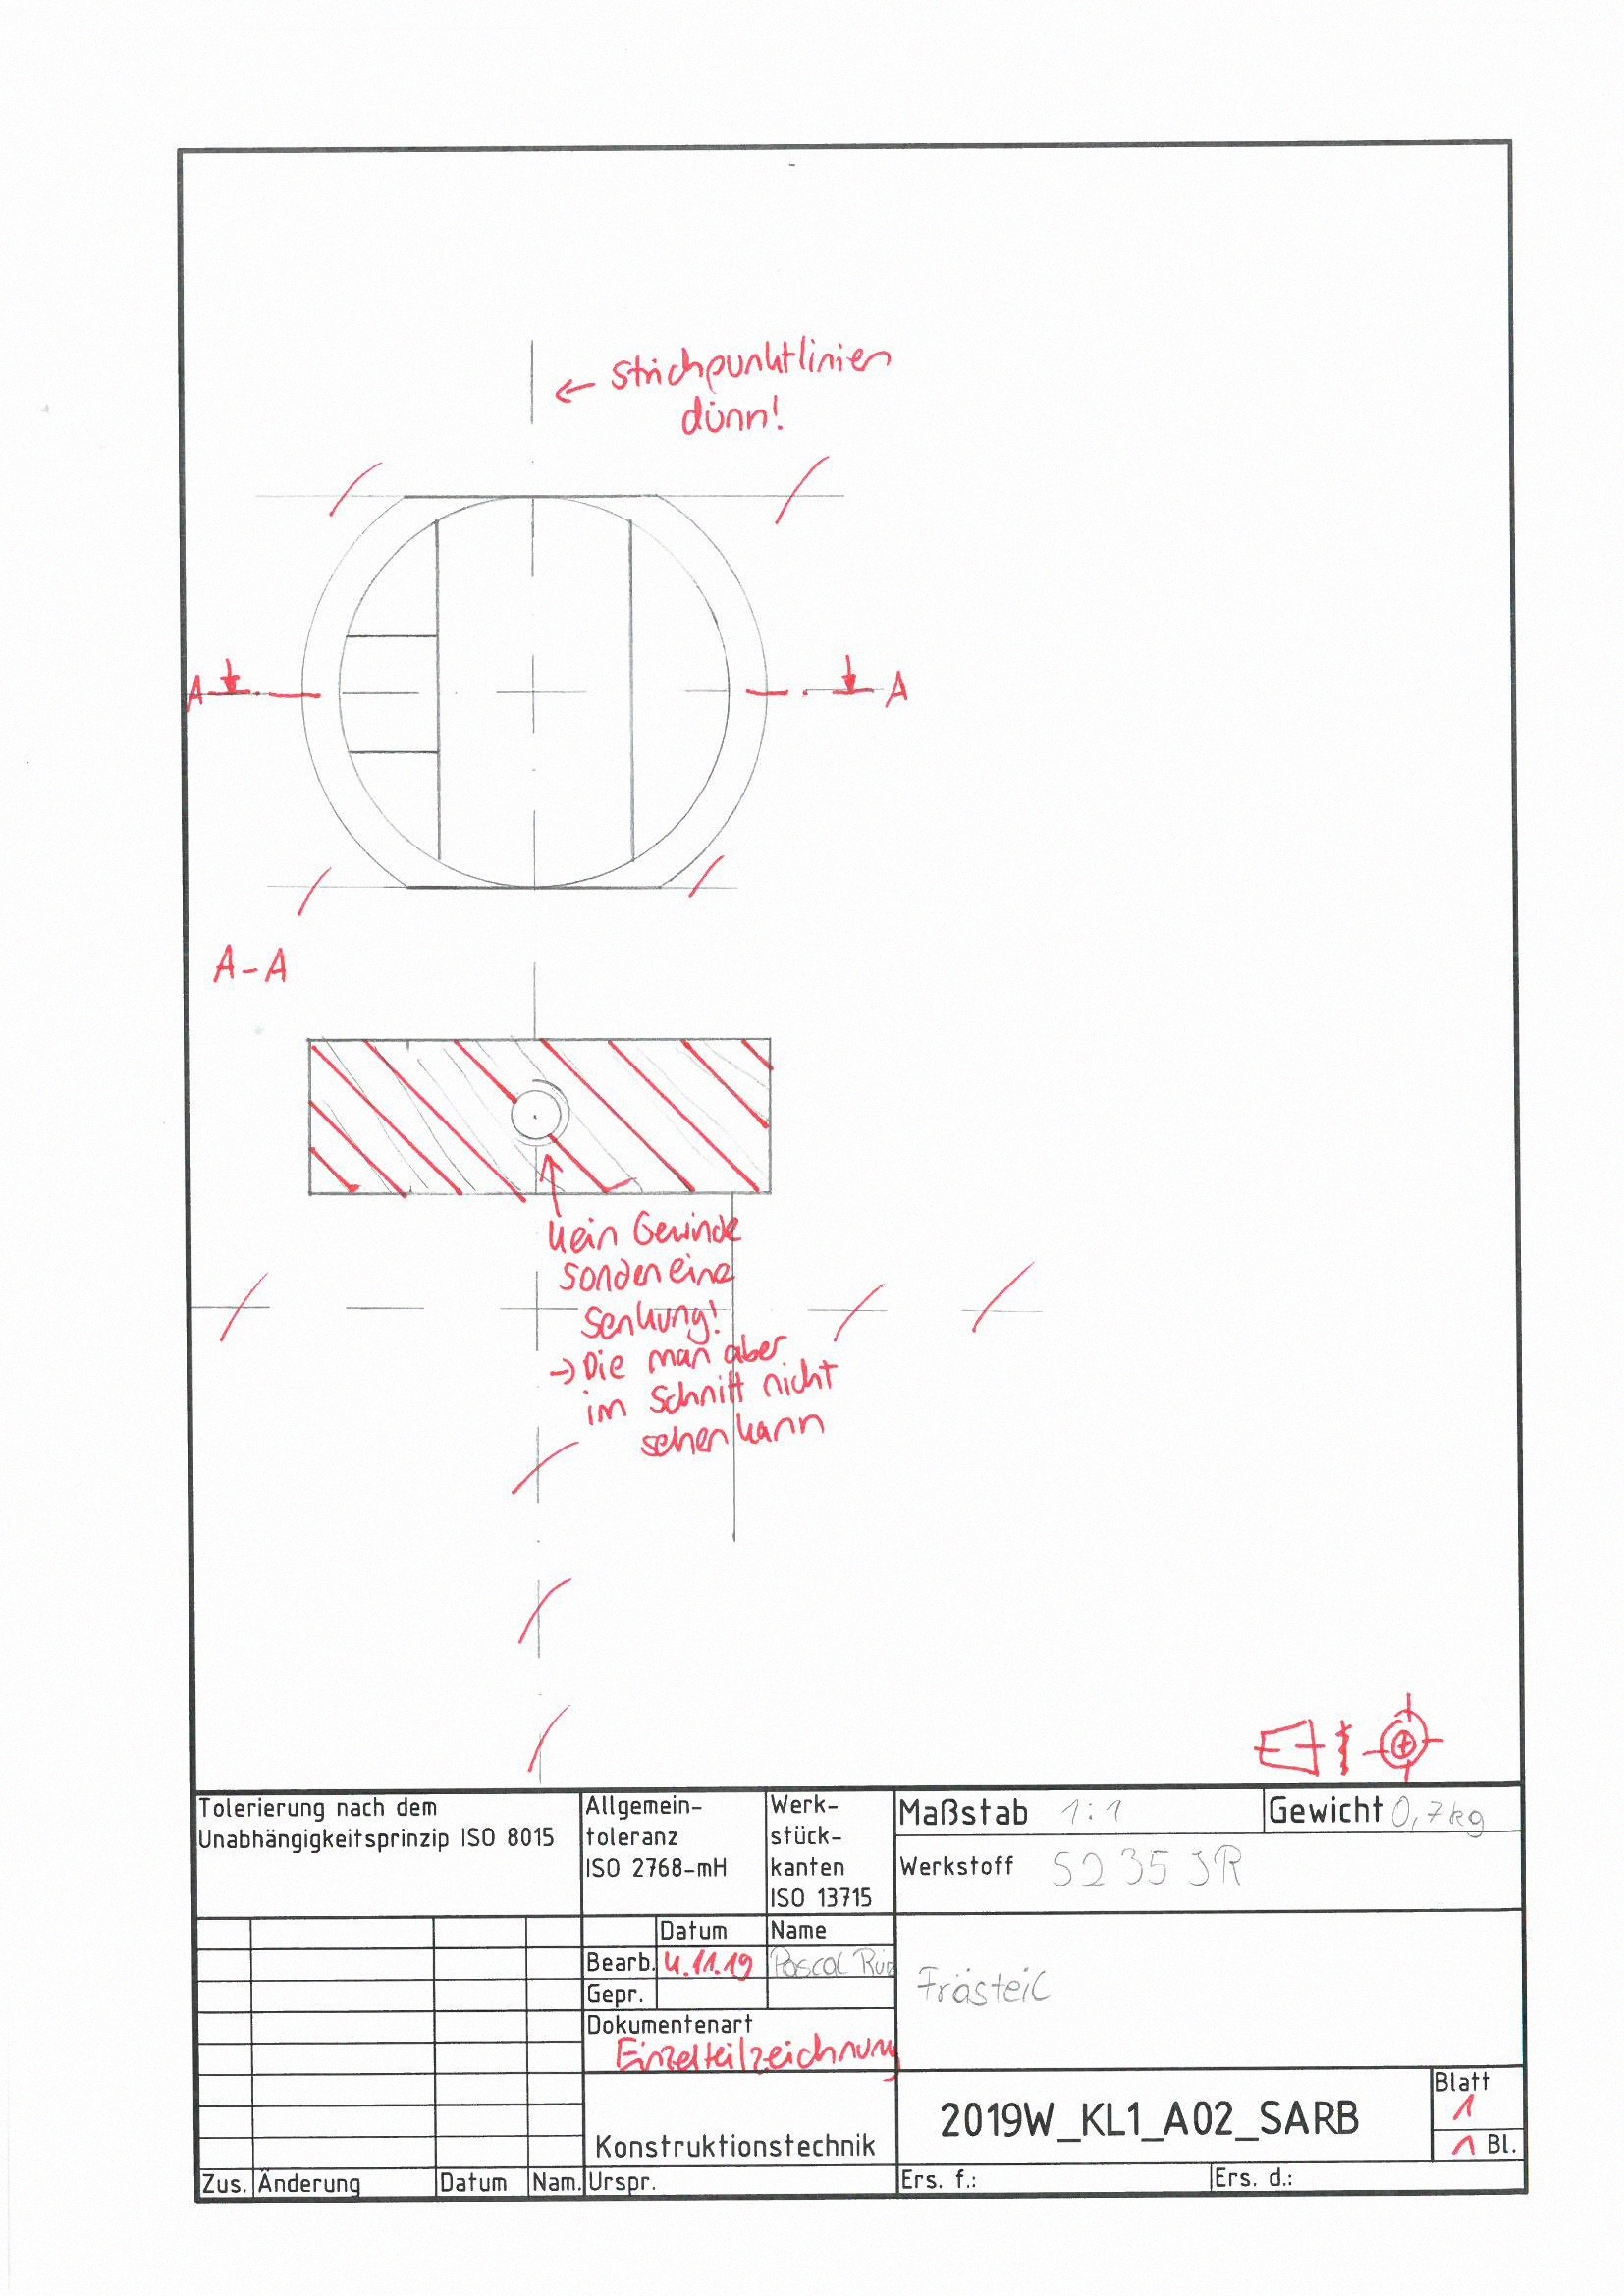 ← Strichpunktlinien
dünn!
A A
A-A
kein Gewinde
sondern eine
Senkung!
→ Die man aber
im Schnitt nicht
sehen kann
Tolerierung nach dem
Unabhängigkeitsprinzip ISO 8015
Allgemein-
toleranz
ISO 2768-mH
Werk-
stück-
kanten
ISO 13715
Maßstab 1:1
Gewicht 0,7kg
Werkstoff S235JR
Datum Name
Bearb. 4.11.19 Pascal
Gepr.
Frästeil
Dokumentenart
Einzelteilzeichnung
Konstruktionstechnik
2019W_KL1_A02_SARB
Blatt
1
1 Bl.
Zus. Änderung Datum Nam. Urspr. Ers. f.: Ers. d.: